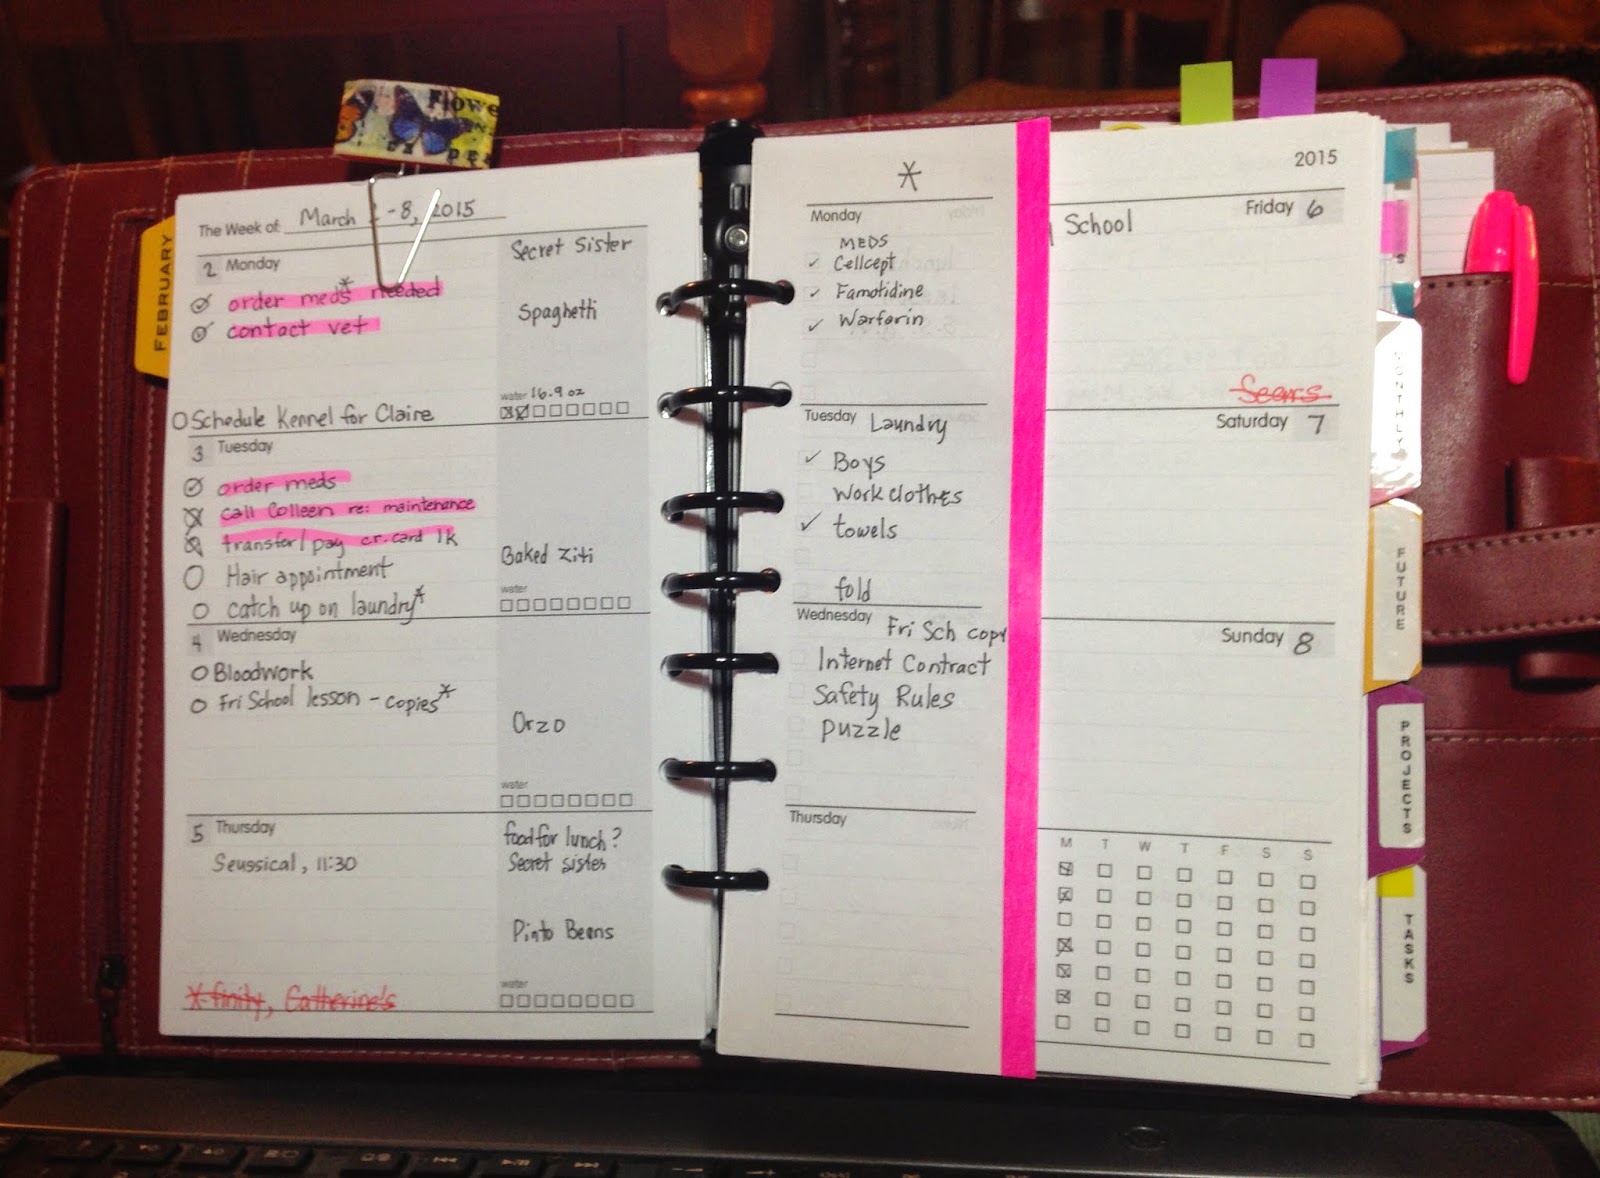 Flowe
FEBRUARY
The Week of: March -8, 2015
Secret Sister
2 Monday
order meds* needed
contact vet
Spaghetti
water 16.9 oz
Schedule Kennel for Claire
3 Tuesday
order meds
call Colleen re: maintenance
transfer/pay cr.card 1k
Hair appointment
catch up on laundry*
Baked Ziti
water
4 Wednesday
Bloodwork
Fri School lesson - copies*
Orzo
water
5 Thursday
Seussical, 11:30
food for lunch?
Secret sister
Pinto Beans
water
X-finity, Catherine's
*
Monday
MEDS
✓ Cellcept
✓ Famotidine
✓ Warfarin
Tuesday Laundry
✓ Boys
Work clothes
✓ towels
fold
Wednesday Fri Sch copy
Internet Contract
Safety Rules
puzzle
Thursday
2015
Friday 6
School
Sears
Saturday 7
Sunday 8
M T W T F S S
MONTHLY
FUTURE
PROJECTS
TASKS